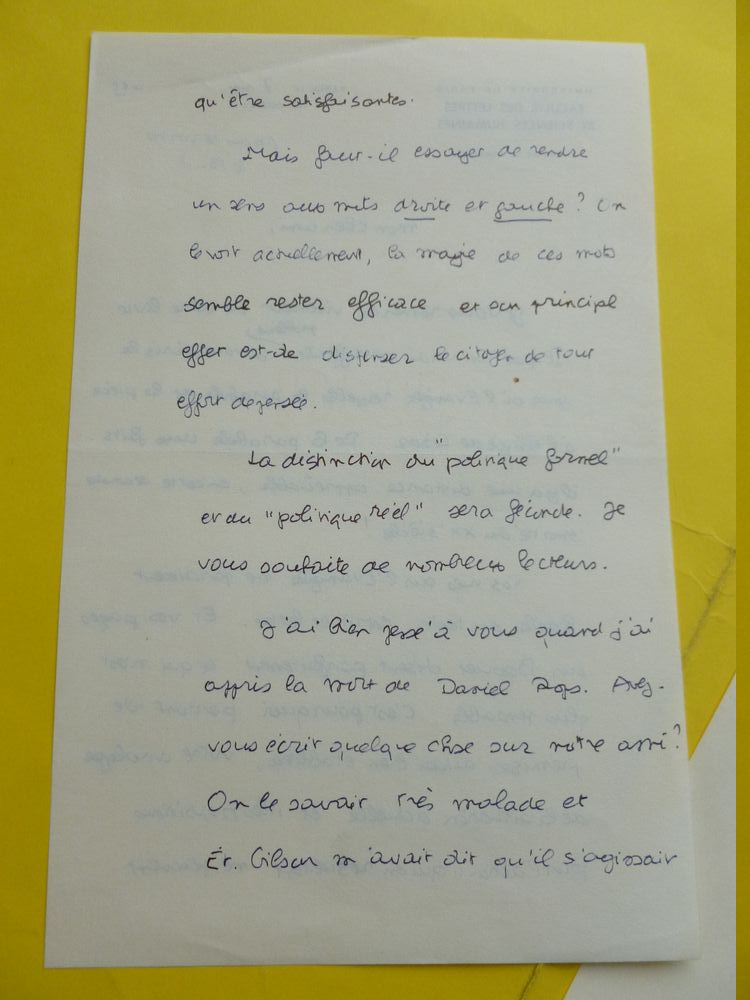 qu'être satisfaisantes.
Mais faut-il essayer de rendre
un sens aux mots droite et gauche ? On
le voit actuellement, la magie de ces mots
semble rester efficace et son principal
effet est-de dispenser le citoyen de tout
effort de pensée.
La distinction du "politique formel"
et du "politique réel" sera féconde. Je
vous souhaite de nombreux lecteurs.
J'ai bien pensé à vous quand j'ai
appris la mort de Daniel Rops. Avez-
vous écrit quelque chose sur notre ami ?
On le savait très malade et
Ét. Gilson m'avait dit qu'il s'agissait